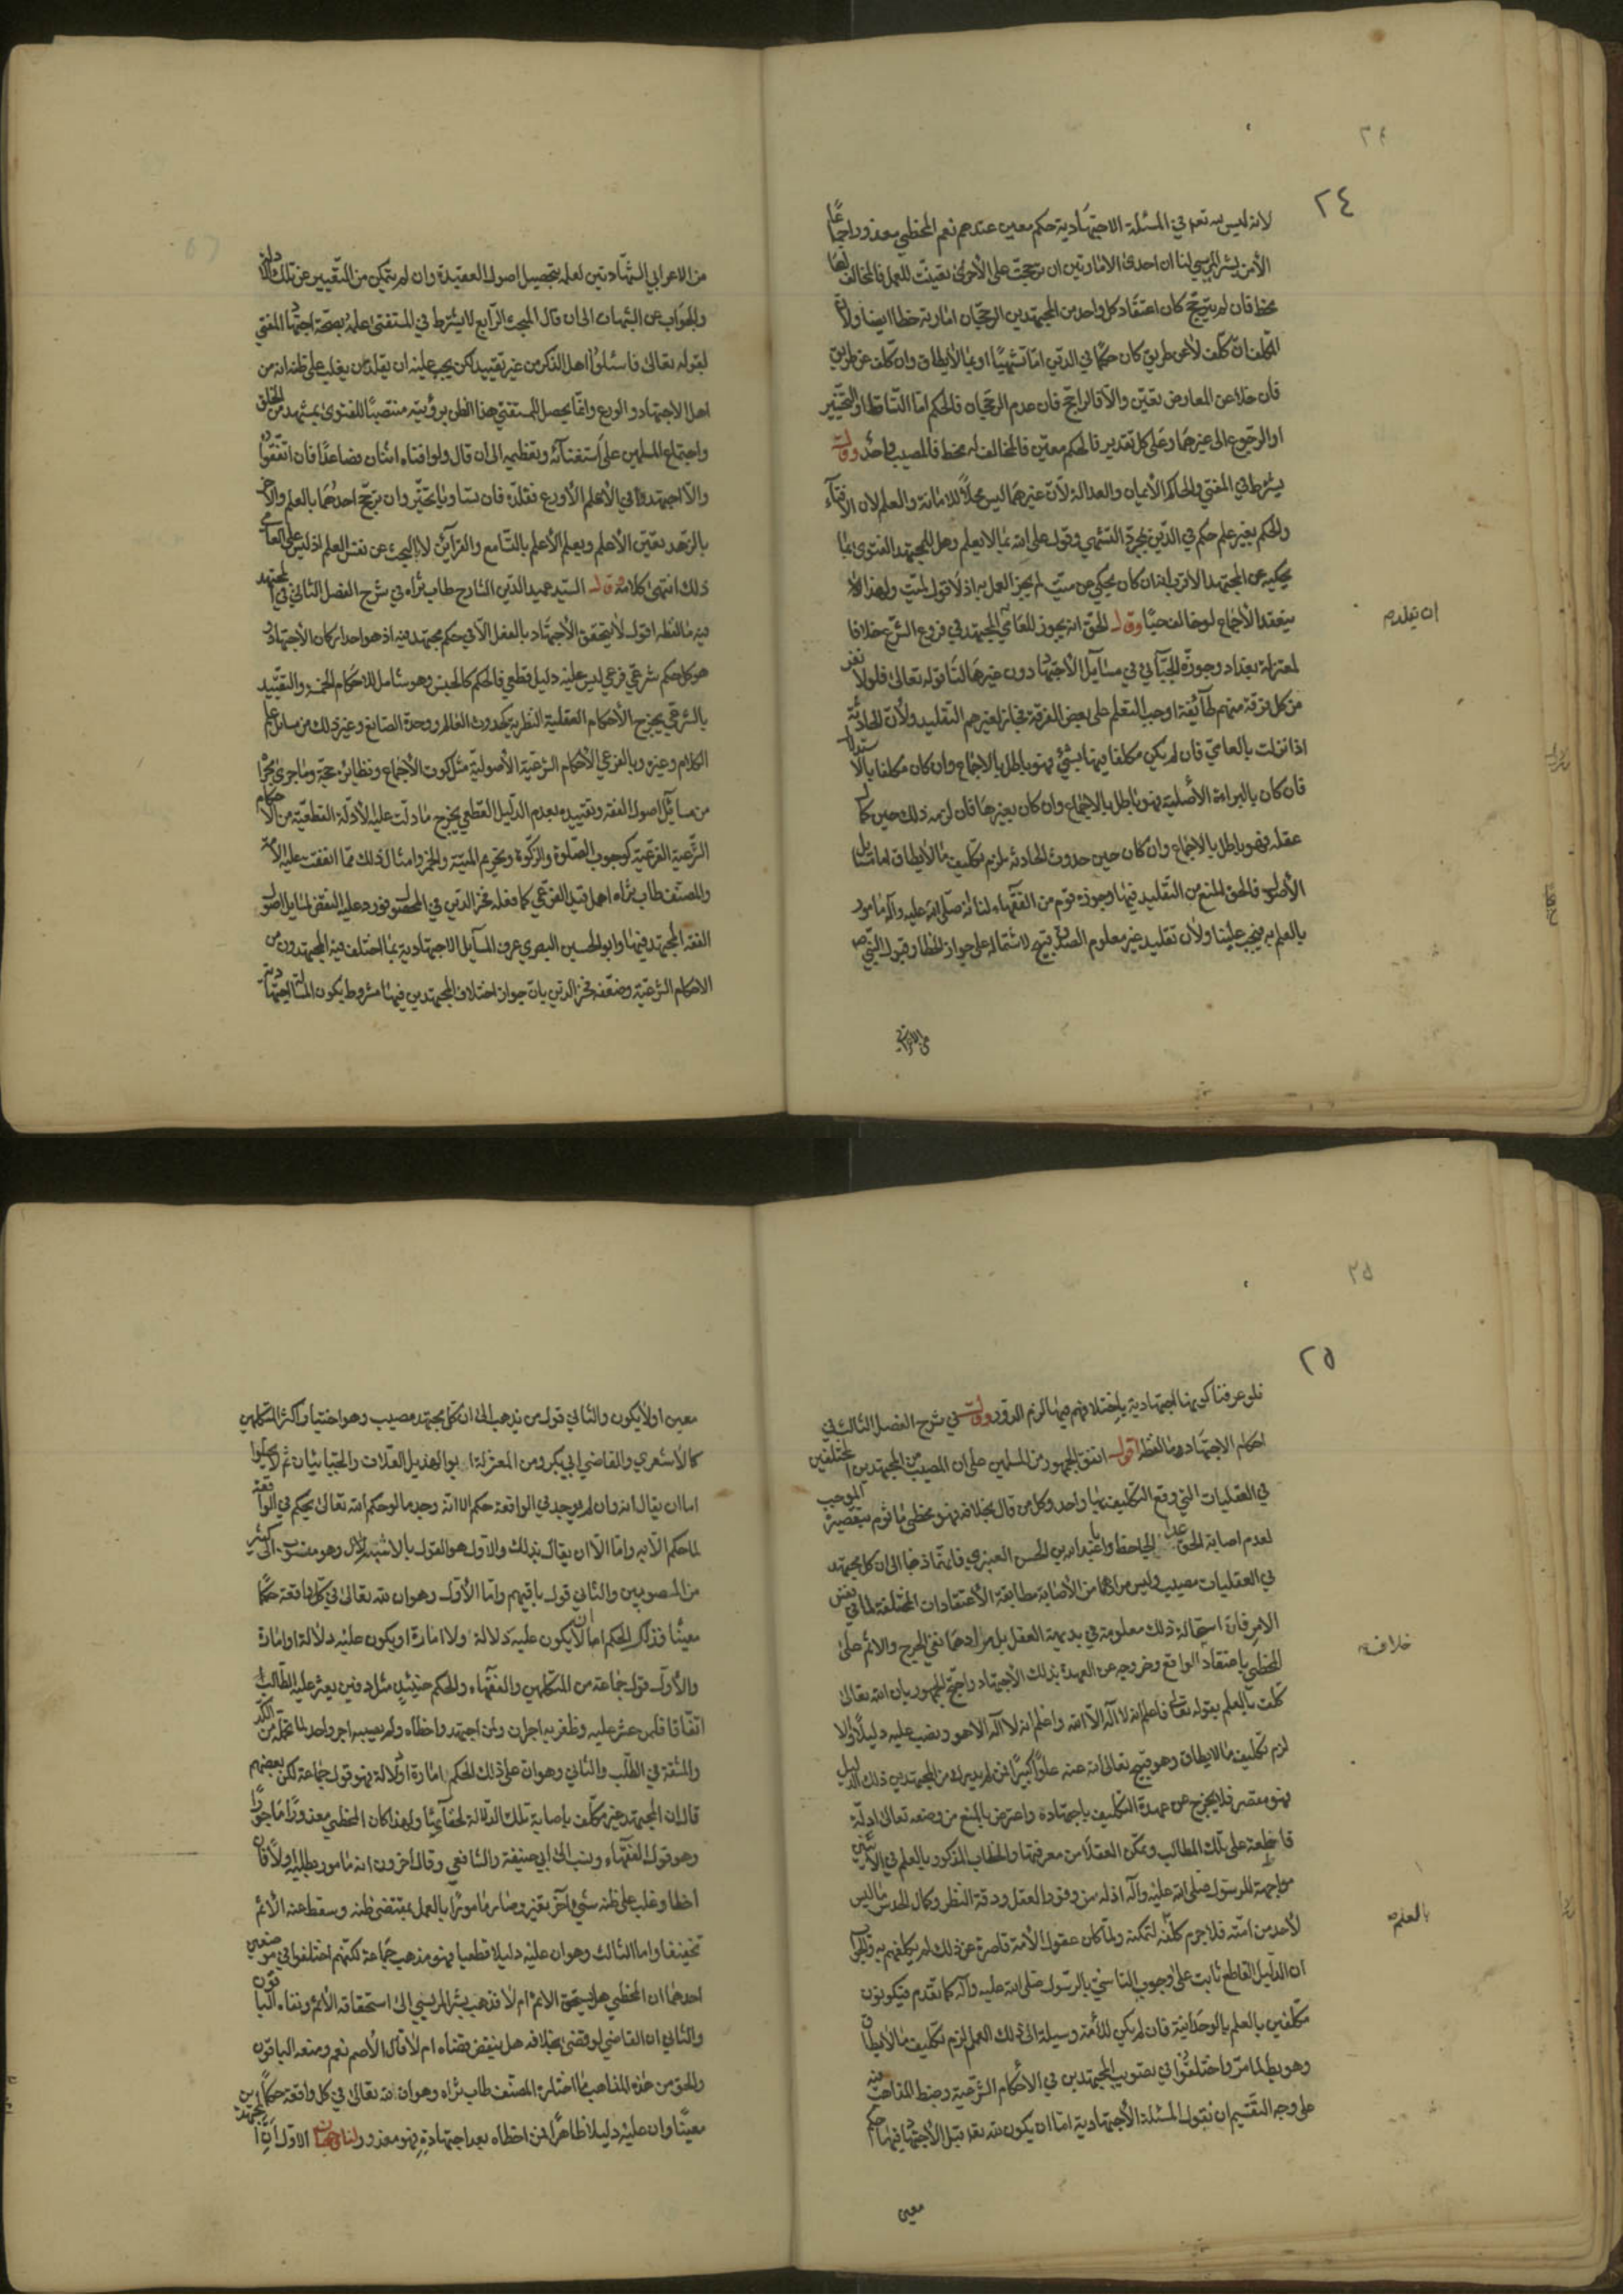 ٢٤
لانه ليس لله تعالى في المسئلة الاجتهادية حكم معين عندهم نعم المخطي معذور اجماعًا
الأمن بشر المريسي لنا ان احدى الامارتين ان ترجحت على الأخرى تعينت للعمل فالمخالف لها
مخط فان لم يترجح كان اعتقاد كل واحد من المجتهدين الرجحان امارته خطا ايضا ولان
المكلف ان كلف لا عن طريق كان حكما في الدين اما تشهيًا او بما لا يطاق وان كلف عن طريق
فان خلا عن المعارض تعين والا فالراجح فان عدم الرجحان فالحكم اما التساقط او التخيير
او الرجوع الى غيرهما وعلى كل تقدير فالحكم معين فالمخالف له مخط فالمصيب واحد وقال
يشترط في المفتي والحاكم الأيمان والعدالة لأن غيرهما ليس محلاً للامانة والعلم لان الافتاء
والحكم بغير علم حكم في الدين بمجرد التشهي وقول على الله بما لا يعلم وهل للمجتهد الفتوى بما
يحكيه عن المجتهد الاقرب انه ان كان يحكي عن ميت لم يجز العمل به اذ لا قول لميت ولهذا لا
ينعقد الأجماع لو خالف حيًا وقال الحق انه يجوز للعامي المجتهد في فروع الشرع خلافا
ان تقليده
لمعتزلة بغداد وجوزه الجبآئي في مسآيل الأجتهاد دون غيرها لنا قوله تعالى فلولا نفر
من كل فرقة منهم طآئفة اوجب التعلم على بعض الفرقة فجاز لغيرهم التقليد ولأن الحادثة
اذا نزلت بالعامي فان لم يكن مكلفا فيها بشيء فهو باطل بالاجماع وان كان مكلفا بالاستدلال
فان كان بالبراءة الأصلية فهو باطل بالاجماع وان كان بغيرها فان لزمه ذلك حين كمال
عقله فهو باطل بالاجماع وان كان حين حدوث الحادثة يلزم تكليف ما لا يطاق اما مسايل
الأصول فالحق المنع من التقليد فيها وجوزه قوم من الفقهاء لنا انه صلى الله عليه وآله مامور
بالعلم به فيجب علينا ولأن تقليد غير معلوم الصدق قبيح لاشتماله على جواز الخطا وقبول النبي ص
من الاعرابي
من الاعرابي الشهادتين لعلمه بتحصيل اصول العقيدة وان لم يتمكن من التعبير عن تلك الادلة
والجواب عن الشبهات الى ان قال المبحث الرابع لا يشترط في المستفتي علمه بصحة اجتهاد المفتي
لقوله تعالى فاسئلوا اهل الذكر من غير تقييد لكن يجب عليه ان يقلد من يغلب على ظنه انه من
اهل الاجتهاد والورع وانما يحصل للمستفتي هذا الظن برؤيته منتصبًا للفتوى بمشهد من الخلق
واجتماع المسلمين على استفتآئه وتعظيمه الى ان قال ولو افتاه اثنان فصاعدًا فان اتفقوا
والا اجتهد في الأعلم الأورع فقلده فان تساويا تخير وان ترجح احدهما بالعلم والاخر
بالزهد تعين الأعلم ويعلم الأعلم بالتسامع والقرآئن لا بالبحث عن نفس العلم اذ ليس على العامي
ذلك انتهى كلامه وقال السيد عميد الدين الشارح طاب ثراه في شرح الفصل الثاني في المجتهد
فيه ما لفظه اقول لا يتحقق الأجتهاد بالفعل الا في حكم مجتهد فيه اذ هو احد اركان الأجتهاد
هو كل حكم شرعي فرعي ليس عليه دليل قطعي فالحكم كالجنس وهو شامل للاحكام الخمسة والتقييد
بالشرعي يخرج الأحكام العقلية النظرية كحدوث العالم ووحدة الصانع وغير ذلك من مسائل علم
الكلام وغيره وبالفرعي الأحكام الشرعية الأصولية مثل كون الأجماع ونظائره حجة وما جرى مجراه
من مسآئل اصول الفقه وتقييده بعدم الدليل القطعي يخرج ما دلت عليه الأدلة القطعية من الاحكام
الشرعية الفرعية كوجوب الصلوة والزكوة وتحريم الميتة والخمر وامثال ذلك مما اتفقت عليه الأمة
والمصنف طاب ثراه اهمل قيد الفرعي كما فعله فخر الدين في المحصول فورد عليه النقض بمسايل اصول
الفقه المجتهد فيها وابو الحسين البصري عرف المسآيل الاجتهادية بما اختلف فيه المجتهدون من
الاحكام الشرعية وضعفه فخر الدين بان جواز اختلاف المجتهدين فيها مشروط بكون المسئلة اجتهادية
٢٥
فلو عرفنا كونها اجتهادية باختلافهم فيها لزم الدور وقال في شرح الفصل الثالث في
احكام الاجتهاد ما لفظه اقول اتفق الجمهور من المسلمين على ان المصيب من المجتهدين المختلفين
في العقليات التي وقع التكليف بها واحد وكل من قال بخلافه فهو مخطئ ماثوم بتقصيره الموجب
لعدم اصابة الحق عدا الجاحظ وابا عبد الله بن الحسن العنبري فانهما ذهبا الى ان كل مجتهد
في العقليات مصيب وليس مرادهما من الأصابة مطابقة الأعتقادات المختلفة لما في نفس
الامر فان استحالة ذلك معلومة في بديهة العقل بل مرادهما نفي الحرج والاثم على
المخطئ باعتقاد الواقع وخروجه عن العهدة بذلك الأجتهاد واحتج الجمهور بان الله تعالى
خلافه
كلف بالعلم بقوله تعالى فاعلم انه لا اله الا الله واعلم انه لا اله الا هو ونصب عليه دليلاً والا
لزم تكليف ما لا يطاق وهو قبيح تعالى الله عنه علوًا كبيرًا فمن لم يدرك من المجتهدين ذلك الدليل
فهو مقصر فلا يخرج عن عهدة التكليف باجتهاده واعترض بالمنع من وضعه تعالى ادلة
قاطعة على تلك المطالب وتمكن العقلاء من معرفتها والخطاب المذكور بالعلم في الآيتين
مواجهة للرسول صلى الله عليه وآله اذ له من وفور العقل ودقة النظر وكمال الحدس ما ليس
لأحد من امته فلا جرم كلفه لتمكنه ولما كان عقول الأمة قاصرة عن ذلك لم يكلفهم به والجواب
بالعلم
ان الدليل القاطع ثابت على وجوب التاسي بالرسول صلى الله عليه وآله كما تقدم فيكونون
مكلفين بالعلم بالوحدانية فان لم يكن للأمة وسيلة الى ذلك العمل لزم تكليف ما لا يطاق
وهو بط لما مر واختلفوا في تصويب المجتهدين في الأحكام الشرعية وضبط المذاهب فيه
على وجه التقسيم ان نقول المسئلة الأجتهادية اما ان يكون لله تعالى قبل الأجتهاد فيها حكم
معين
معين او لا يكون والثاني قول من يذهب الى ان كل مجتهد مصيب وهو اختيار اكثر المتكلمين
كالأشعري والقاضي ابي بكر ومن المعتزلة ابو الهذيل العلاف والجبائيان ثم لا يخلوا
اما ان يقال انه وان لم يوجد في الواقعة حكم الا انه وجد ما لو حكم الله تعالى بحكم في الواقعة
لما حكم الا به واما الا ان يقال بذلك والاول هو القول بالاشبه وهو منسوب الى كثير
من المصوبين والثاني قول باقيهم واما الأول وهو ان لله تعالى في كل واقعة حكمًا
معينًا فذلك الحكم اما ان لا يكون عليه دلالة ولا امارة او يكون عليه دلالة او امارة
والأول قول جماعة من المتكلمين والفقهاء والحكم حينئذٍ مثل دفين يعثر عليه الطالب
اتفاقا فلمن عثر عليه وظفر به اجران ولمن اجتهد واخطاه ولم يصبه اجر واحد لما تحمله من الكد
والمشقة في الطلب والثاني وهو ان على ذلك الحكم امارة او دلالة فهو قول جماعة لكن بعضهم
قال ان المجتهد غير مكلف بإصابة تلك الدلالة لخفائها ولهذا كان المخطي معذورًا ماجورًا
وهو قول الفقهاء وينسب الى ابي حنيفة والشافعي وقال آخرون انه مامور بطلبه اولاً فان
اخطا وغلب على ظنه شيء آخر تغير وصار مامورًا بالعمل بمقتضى ظنه وسقط عنه الأثم
تخفيفا واما الثالث وهو ان عليه دليلا قطعيا فهو مذهب جماعة لكنهم اختلفوا في موضعين
احدهما ان المخطي هل يستحق الاثم ام لا فذهب بشر المريسي الى استحقاقه الأثم ونفاه الباقون
والثاني ان القاضي لو قضى بخلافه هل ينقض قضاه ام لا قال الأصم نعم ومنعه الباقون
والحق من هذه المذاهب ما اختاره المصنف طاب ثراه وهو ان لله تعالى في كل واقعة حكمًا
معينًا وان عليه دليلا ظاهرًا فمن اخطاه بعد اجتهاده فهو معذور ولنا وجهان الاول ان